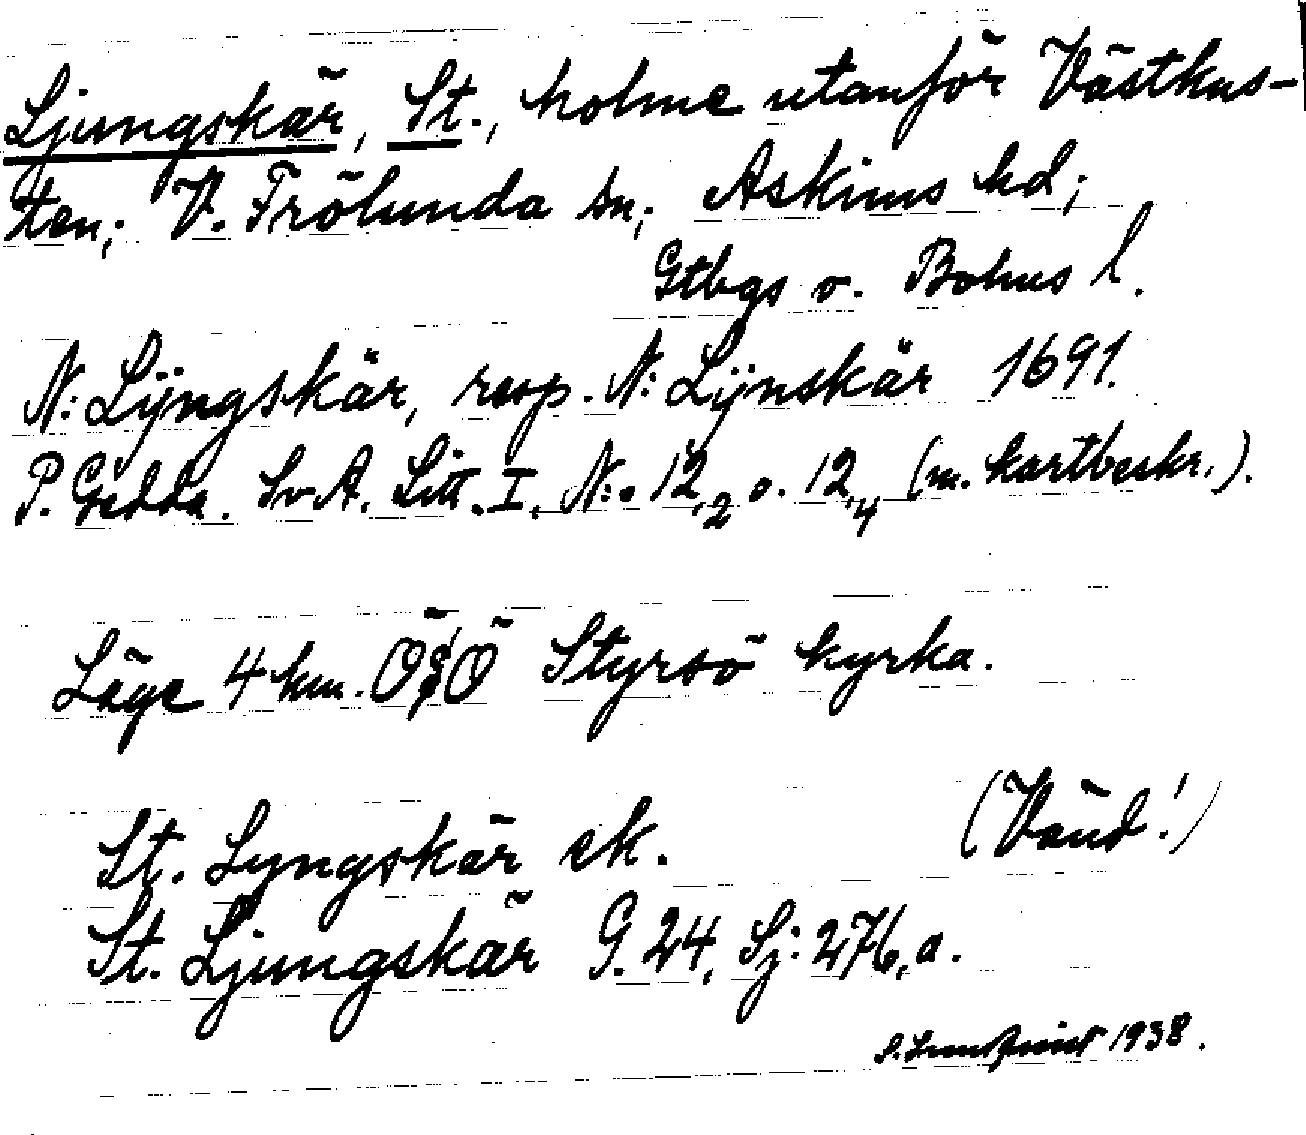 Ljungskär, St., holme utanför Västkus-
ten; V. Frölunda sn; Askims hd;
Gtbgs o. Bohus l.
N: Lÿngskär, resp. N: Lÿnskär 1691.
P. Gedda. SvA. Litt. I. N:o 12,2 o. 12,4 (m. kartbeskr.).
Läge 4 km. ÖSÖ Styrsö kyrka.
(Vänd!)
St. Lyngskär ek.
St. Ljungskär G. 24, Sj: 276,a.
S. Lundquist 1938.